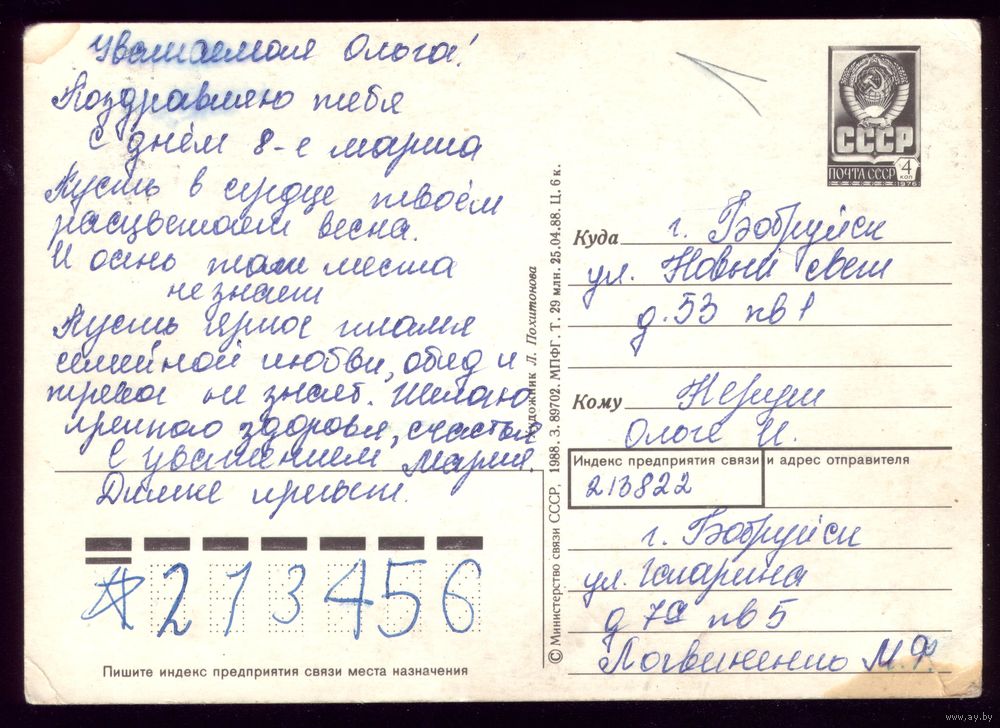 Уважаемая Ольга!
Поздравляю тебя
с днём 8-е марта
Пусть в сердце твоём
расцветает весна.
И осень там места
не знает
Пусть яркое пламя
семейной любви, обид и
тревог не знает. Желаю
крепкого здоровья, счастья
С уважением Мария.
Димке привет.
*213456
Пишите индекс предприятия связи места назначения
© Министерство связи СССР, 1988. З. 89702. МПФГ. Т. 29 млн. 25.04.88. Ц. 6 к.
Художник Л. Похитонова
СССР
ПОЧТА СССР 4 КОП
1976
Куда г. Бобруйск
ул. Новый свет
д. 53 кв 1
Кому
Ольге И.
Индекс предприятия связи и адрес отправителя
213822
г. Бобруйск
ул. Гагарина
д 7а кв 5
Логвиненко М.Ф.
www.ay.by